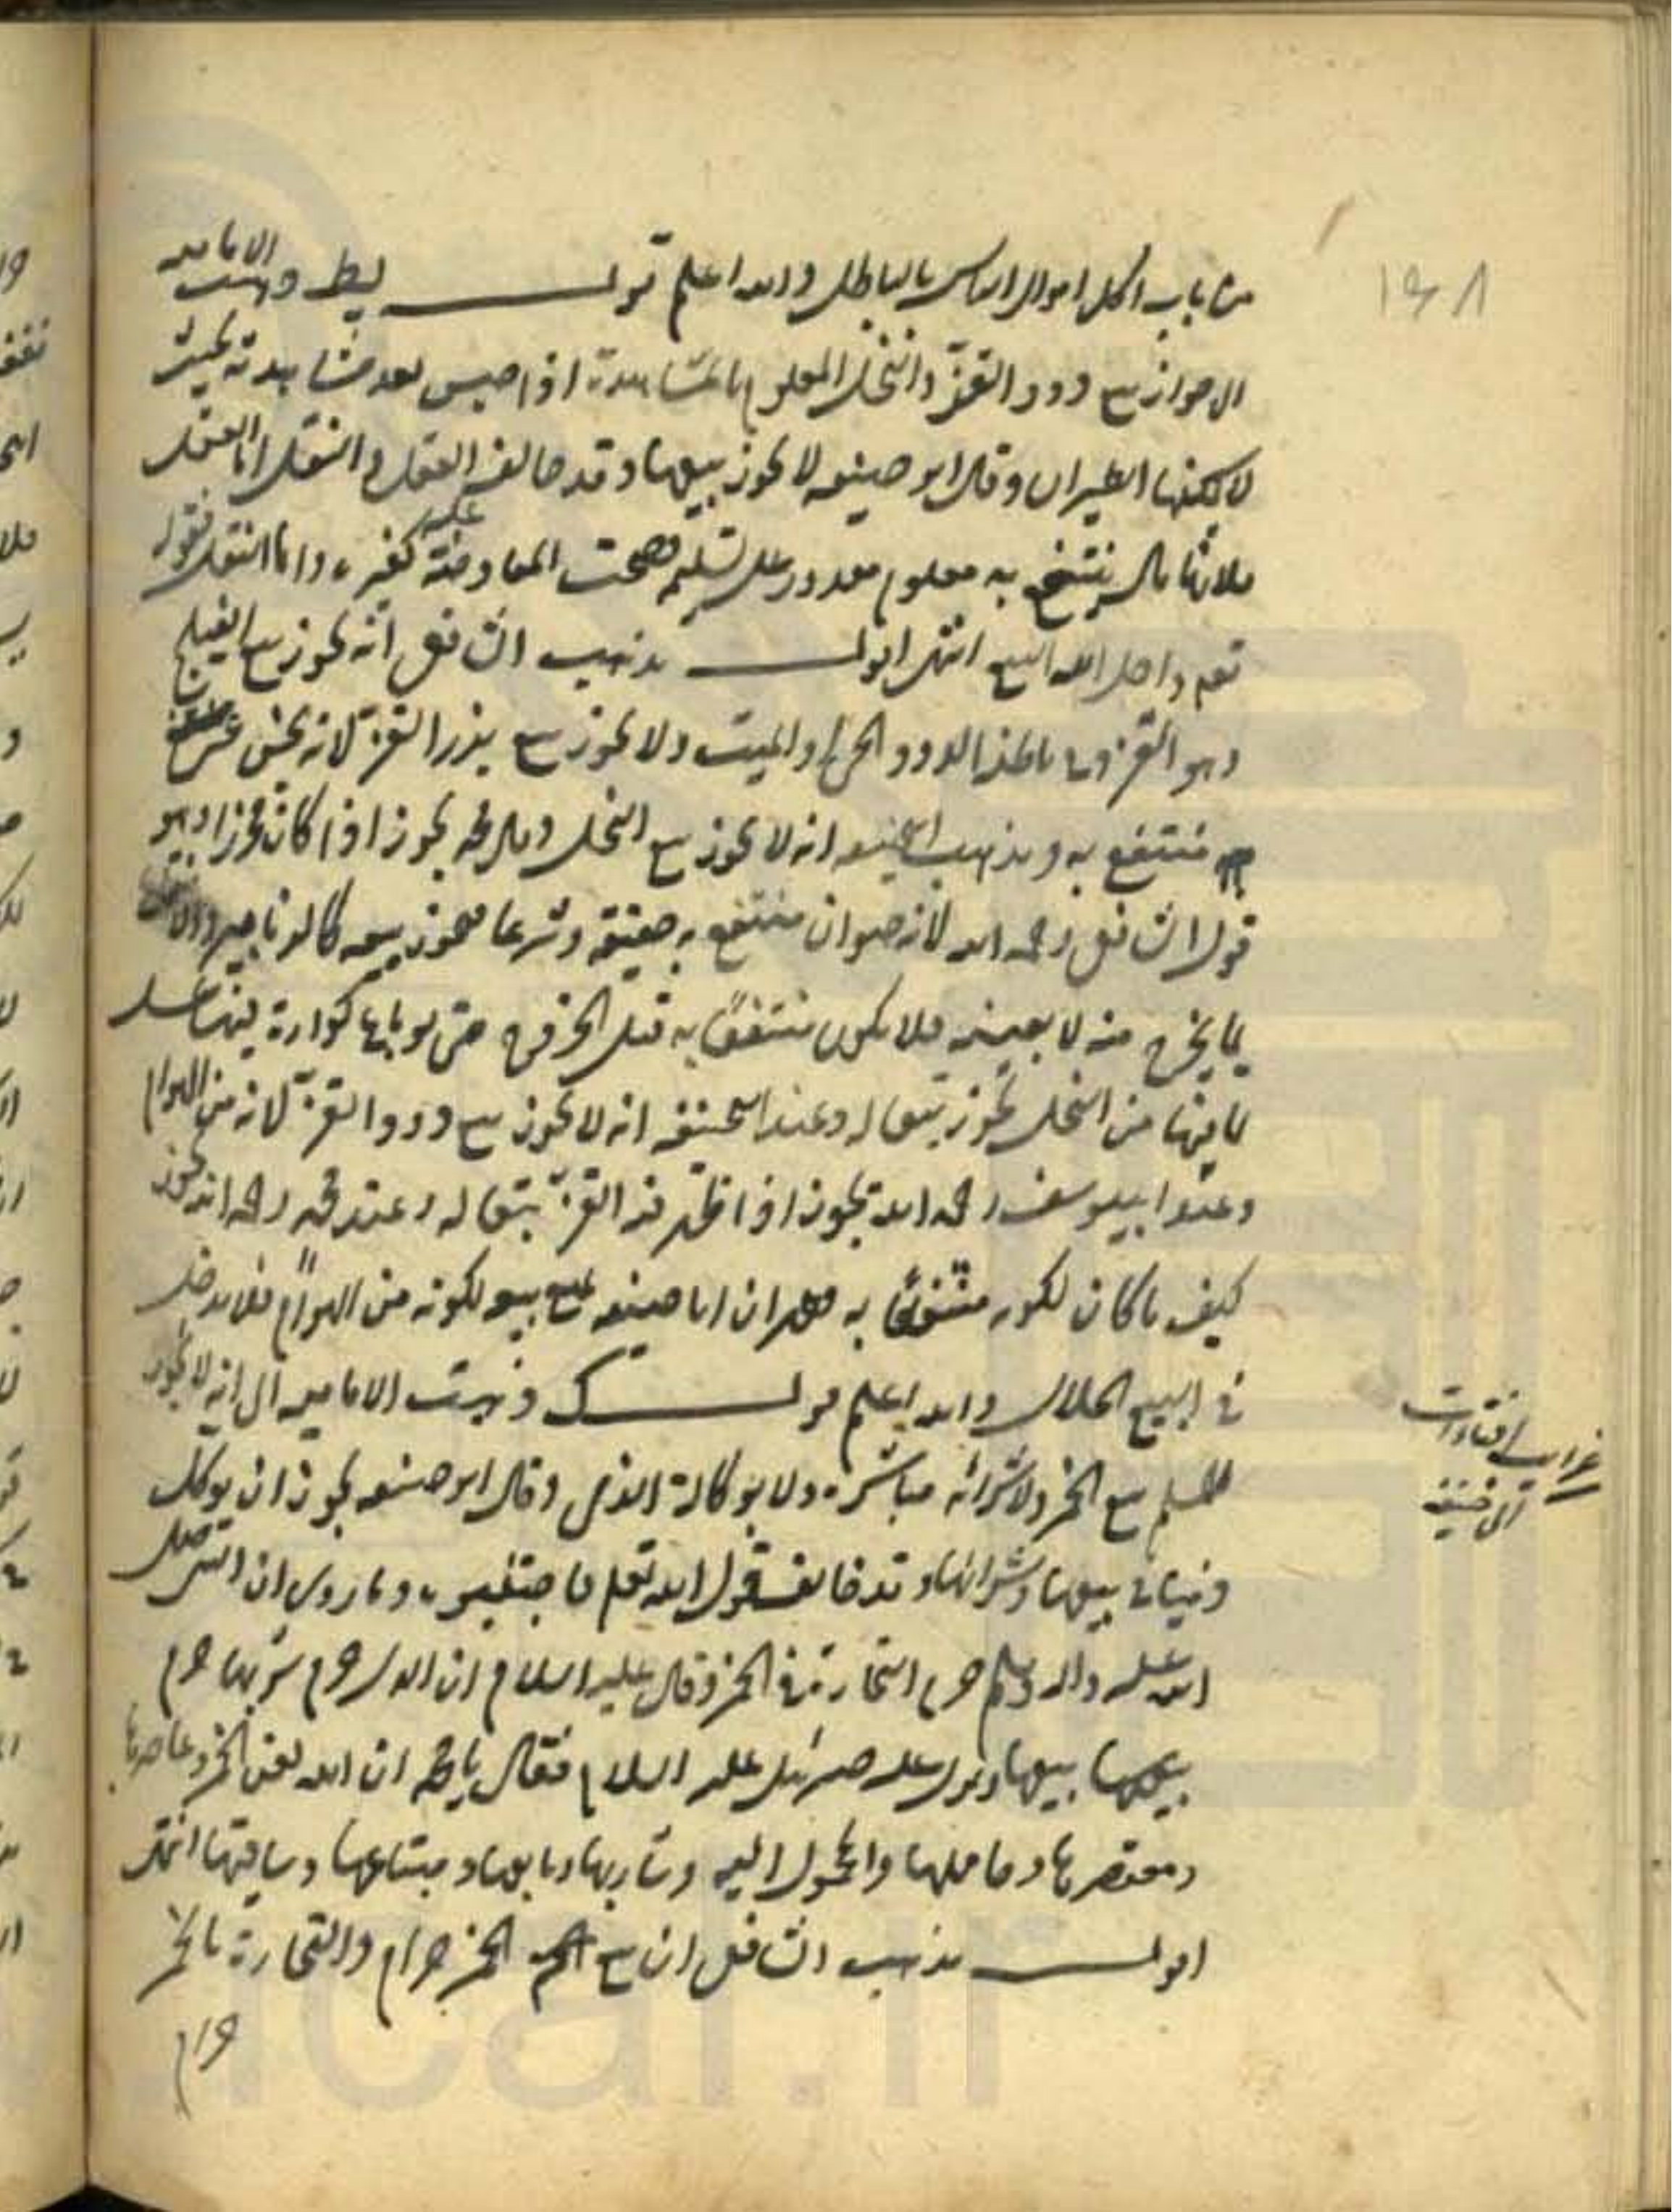 من باب اكل اموال الناس بالباطل والله اعلم قولـــه يط ذهبت الامامية
الى جواز بيع دود القز والنحل المعلوم بالمشاهدة اذا حبس بعد مشاهدته بحيث
لا يمكنها الطيران وقال ابو حنيفه لا يجوز بيعها وقد خالف العقل والنقل اما العقل
فلانها مال ينتفع به معلوم مقدور على تسليمه فصحت المعاوضة عليه كغيره واما النقل فقوله
تعم واحل الله البيع انتهى اقول مذهب الشافعى انه يجوز بيع الفيلج
وهو القز وفى باطنه الدود الحى والميت ولا يجوز بيع بزر القز لانه نجس غير
منتفع به ومذهب ابيحنيفه انه لا يجوز بيع النحل وقال محمد يجوز اذا كان محرزا وهو
قول الشافعى رحمه الله لانه حيوان منتفع به حقيقة وشرعا فيجوز بيعه
بما يخرج منه لا بعينه فلا يكون منتفعًا به قبل الخروج حتى لو باع كوارة فيها عسل
بما فيها من النحل يجوز تبعا له وعند ابيحنيفه انه لا يجوز بيع دود القز لانه من الهوام
وعند ابييوسف رحمه الله يجوز اذا ظهر فيه القز تبعا له وعند محمد رحمه الله يجوز
كيف ما كان لكونه منتفعًا به فعلم ان ابا حنيفه منع بيعه لكونه من الهوام فلا يدخل
فى البيع الحلال والله اعلم قولــه ك ذهبت الاماميه الى انه لا يجوز
للمسلم بيع الخمر ولا شرائه مباشرة ولا بوكالة الذمى وقال ابو حنيفه يجوز ان يوكل
ذميا فى بيعها وشرائها وقد خالف قول الله تعم فاجتنبوه وما روى ان النبى صلى
الله عليه واله وسلم حرم التجارة فى الخمر وقال عليه السلام ان الذى حرم شربها حرم
بيعها ونزل عليه جبرئيل عليه السلام فقال يا محمد ان الله لعن الخمر وعاصرها
ومعتصرها وحاملها والمحمول اليه وشاربها وبايعها ومبتاعها وساقيها انتهى
اقول مذهب الشافعى ان بيع الخمر حرام والتجارة بالخمر
حرام
١٤٨
غرائب افتاءات
ابى حنيفة